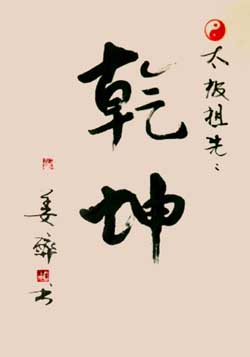 太极祖先
乾坤
姜醉书